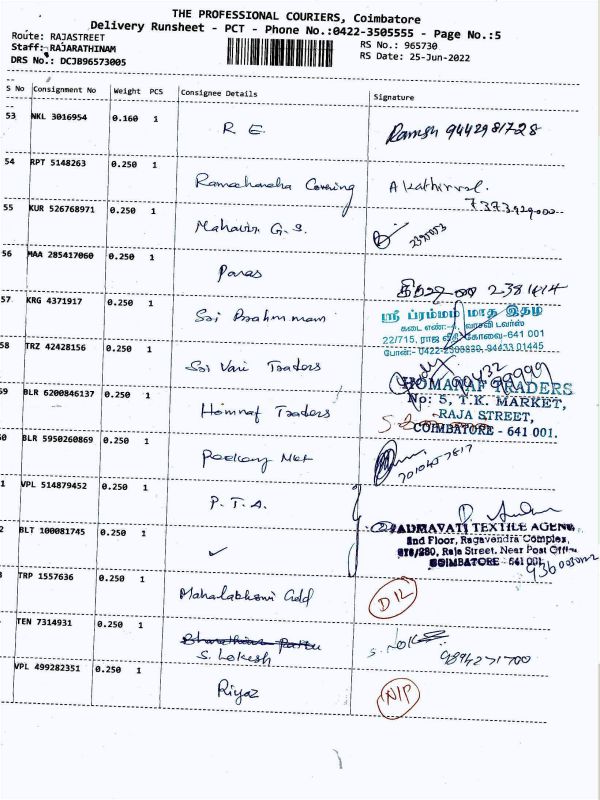 THE PROFESSIONAL COURIERS, Coimbatore
Delivery Runsheet - PCT - Phone No.:0422-3505555 - Page No.:5
Route: RAJASTREET
Staff: RAJARATHINAM
DRS No.: DCJB96573005
RS No.: 965730
RS Date: 25-Jun-2022
S No Consignment No Weight PCS Consignee Details Signature
53 NKL 3016954 0.160 1 R E. Ramesh 9442981728
54 RPT 5148263 0.250 1 Ramachandra Covering A Kathirvel.
55 KUR 526768971 0.250 1 Mahavir G.S. 2395053
56 MAA 285417060 0.250 1 Paras 2381414
57 KRG 4371917 0.250 1 Sri Brahmmam
ஸ்ரீ ப்ரம்மம் மாத இதழ்
கடை எண்:-4, வாசவி டவர்ஸ்
22/715, ராஜ வீதி, கோவை-641 001
போன்:- 0422- 94433 01445
58 TRZ 42428156 0.250 1 Sri Vari Traders 99432 99999
59 BLR 6200846137 0.250 1 Homnaf Traders
HOMANAF TRADERS
No: 5, T.K. MARKET,
RAJA STREET,
COIMBATORE - 641 001.
0 BLR 5950260869 0.250 1 7010457617
1 VPL 514879452 0.250 1 P.T.A.
2 BLT 100081745 0.250 1 ✓
PADMAVATI TEXTILE AGENC
2nd Floor, Ragavendra Complex,
Raja Street, Near Post Office
COIMBATORE - 641 001
TRP 1557636 0.250 1 Mahalakshmi Gold D12
TEN 7314931 0.250 1 S. Lokesh S. 9894271700
VPL 499282351 0.250 1 Riyaz N/P